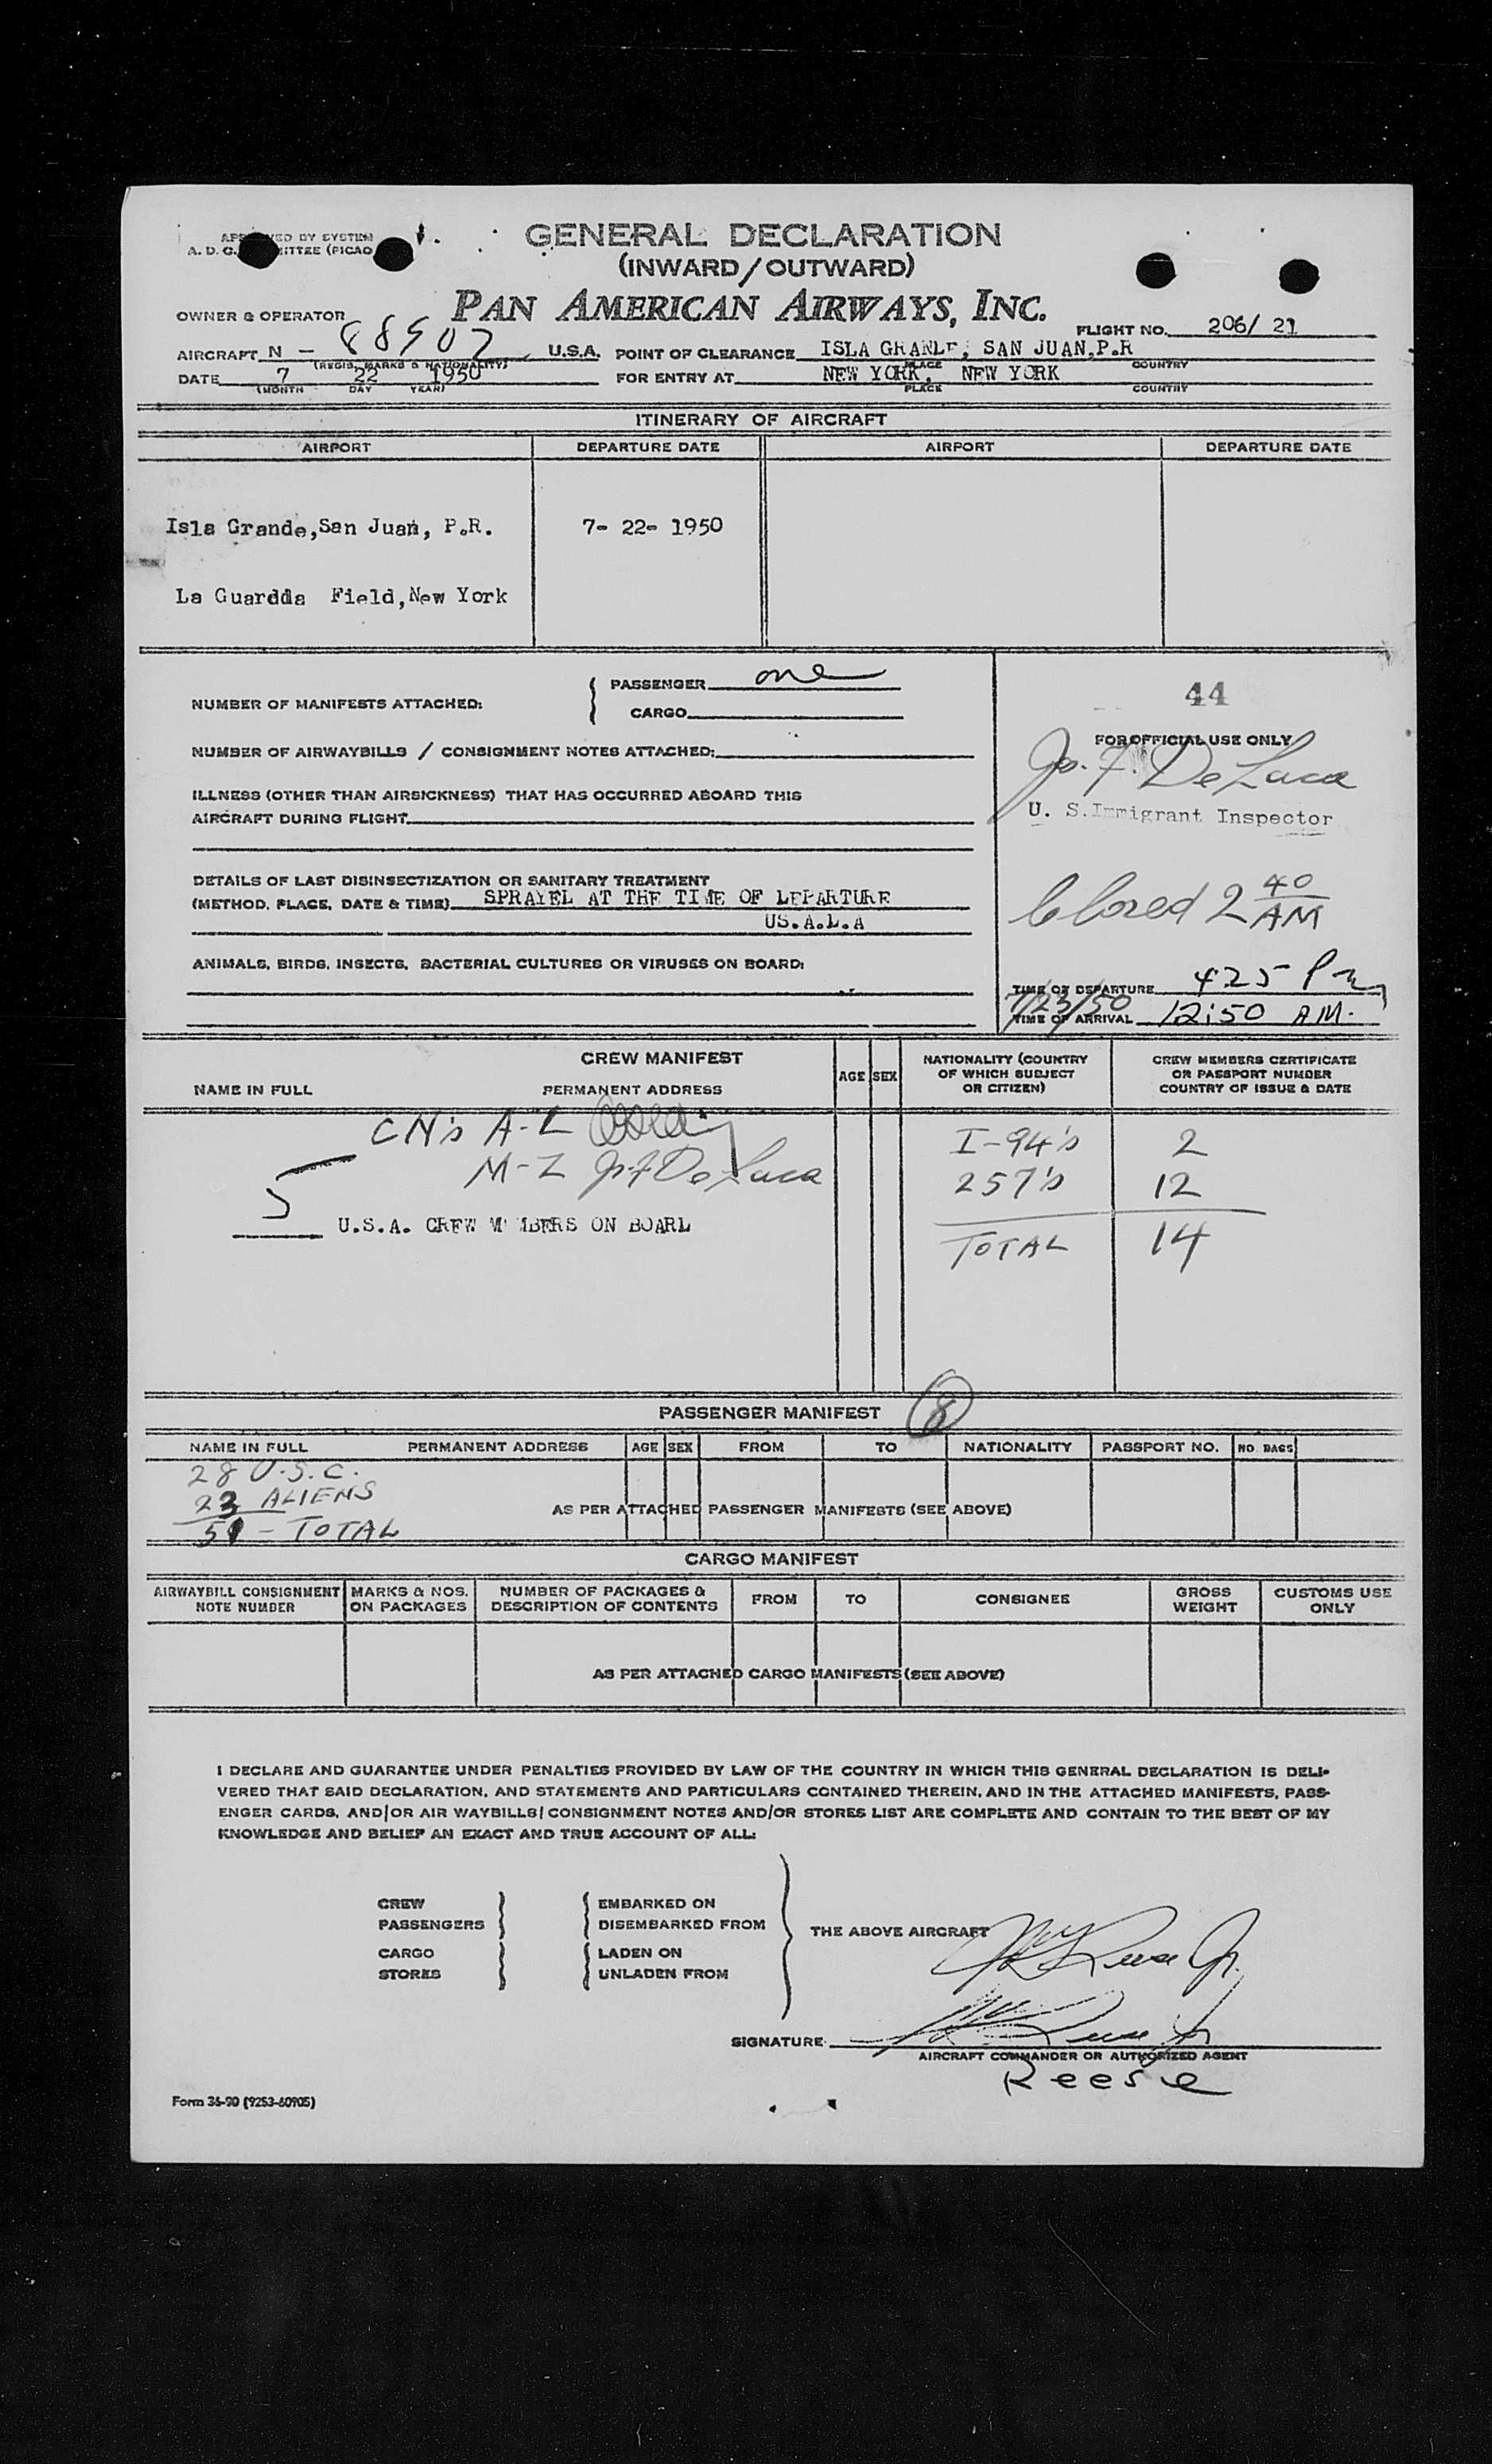 GENERAL DECLARATION
(INWARD/OUTWARD)
PAN AMERICAN AIRWAYS, INC.
OWNER & OPERATOR
FLIGHT NO. 206/ 21
AIRCRAFT N - 88902 U.S.A. POINT OF CLEARANCE ISLA GRANDE, SAN JUAN, P.R
(REGIS. MARKS & NATIONALITY) PLACE COUNTRY
DATE 7 22 1950 FOR ENTRY AT NEW YORK, NEW YORK
(MONTH DAY YEAR) PLACE COUNTRY
ITINERARY OF AIRCRAFT
AIRPORT DEPARTURE DATE AIRPORT DEPARTURE DATE
Isla Grande, San Juan, P.R. 7- 22- 1950
La Guarddia Field, New York
NUMBER OF MANIFESTS ATTACHED: PASSENGER one
CARGO
44
NUMBER OF AIRWAYBILLS / CONSIGNMENT NOTES ATTACHED:
FOR OFFICIAL USE ONLY
Jo. F. De Luca
U. S. Immigrant Inspector
ILLNESS (OTHER THAN AIRSICKNESS) THAT HAS OCCURRED ABOARD THIS
AIRCRAFT DURING FLIGHT
DETAILS OF LAST DISINSECTIZATION OR SANITARY TREATMENT
(METHOD, PLACE, DATE & TIME) SPRAYED AT THE TIME OF DEPARTURE
US.A.D.A
Closed 2 40 AM
ANIMALS, BIRDS, INSECTS, BACTERIAL CULTURES OR VIRUSES ON BOARD:
TIME OF DEPARTURE 425 Pm
7/23/50
TIME OF ARRIVAL 12:50 AM.
CREW MANIFEST
NAME IN FULL PERMANENT ADDRESS AGE SEX NATIONALITY (COUNTRY OF WHICH SUBJECT OR CITIZEN) CREW MEMBERS CERTIFICATE OR PASSPORT NUMBER COUNTRY OF ISSUE & DATE
CN's A-L
M-Z Jo. F De Luca
I-94's 2
257's 12
TOTAL 14
5 U.S.A. CREW MEMBERS ON BOARD
PASSENGER MANIFEST 8
NAME IN FULL PERMANENT ADDRESS AGE SEX FROM TO NATIONALITY PASSPORT NO. NO. BAGS
28 U.S.C.
23 ALIENS
51 - TOTAL
AS PER ATTACHED PASSENGER MANIFESTS (SEE ABOVE)
CARGO MANIFEST
AIRWAYBILL CONSIGNMENT NOTE NUMBER MARKS & NOS. ON PACKAGES NUMBER OF PACKAGES & DESCRIPTION OF CONTENTS FROM TO CONSIGNEE GROSS WEIGHT CUSTOMS USE ONLY
AS PER ATTACHED CARGO MANIFESTS (SEE ABOVE)
I DECLARE AND GUARANTEE UNDER PENALTIES PROVIDED BY LAW OF THE COUNTRY IN WHICH THIS GENERAL DECLARATION IS DELI-
VERED THAT SAID DECLARATION, AND STATEMENTS AND PARTICULARS CONTAINED THEREIN, AND IN THE ATTACHED MANIFESTS, PASS-
ENGER CARDS, AND/OR AIR WAYBILLS/CONSIGNMENT NOTES AND/OR STORES LIST ARE COMPLETE AND CONTAIN TO THE BEST OF MY
KNOWLEDGE AND BELIEF AN EXACT AND TRUE ACCOUNT OF ALL:
CREW EMBARKED ON
PASSENGERS DISEMBARKED FROM
THE ABOVE AIRCRAFT
CARGO LADEN ON
STORES UNLADEN FROM
SIGNATURE
AIRCRAFT COMMANDER OR AUTHORIZED AGENT
Reese
Form 36-90 (9253-60905)